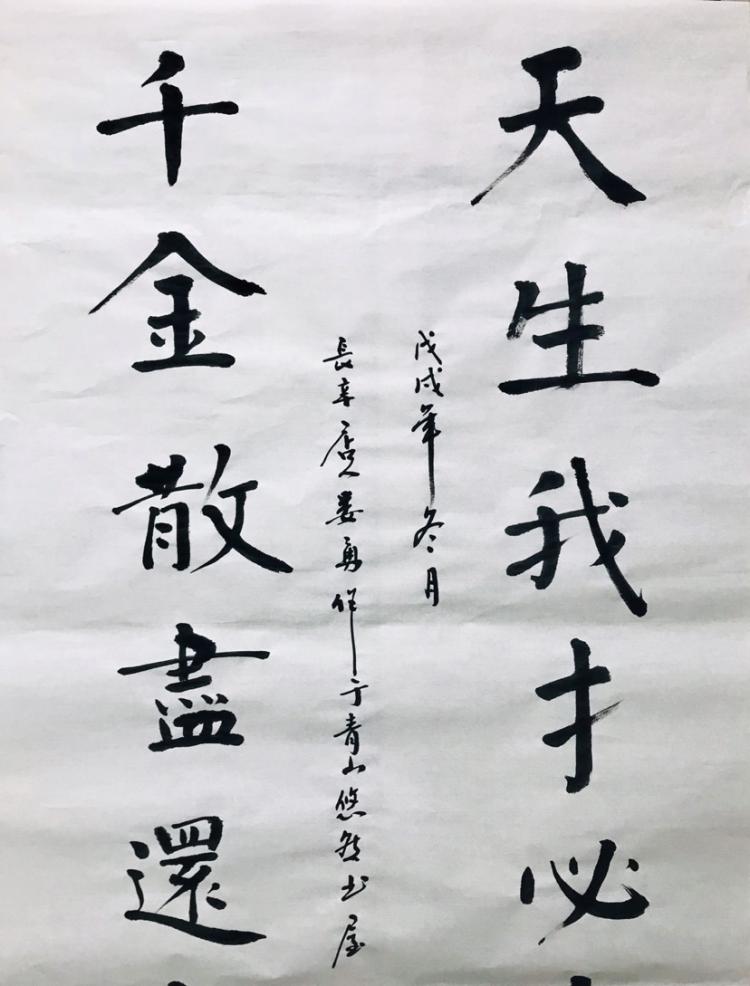 天生我才必
戊戌年冬月
長辛店人娄勇作于青山悠然书屋
千金散盡還